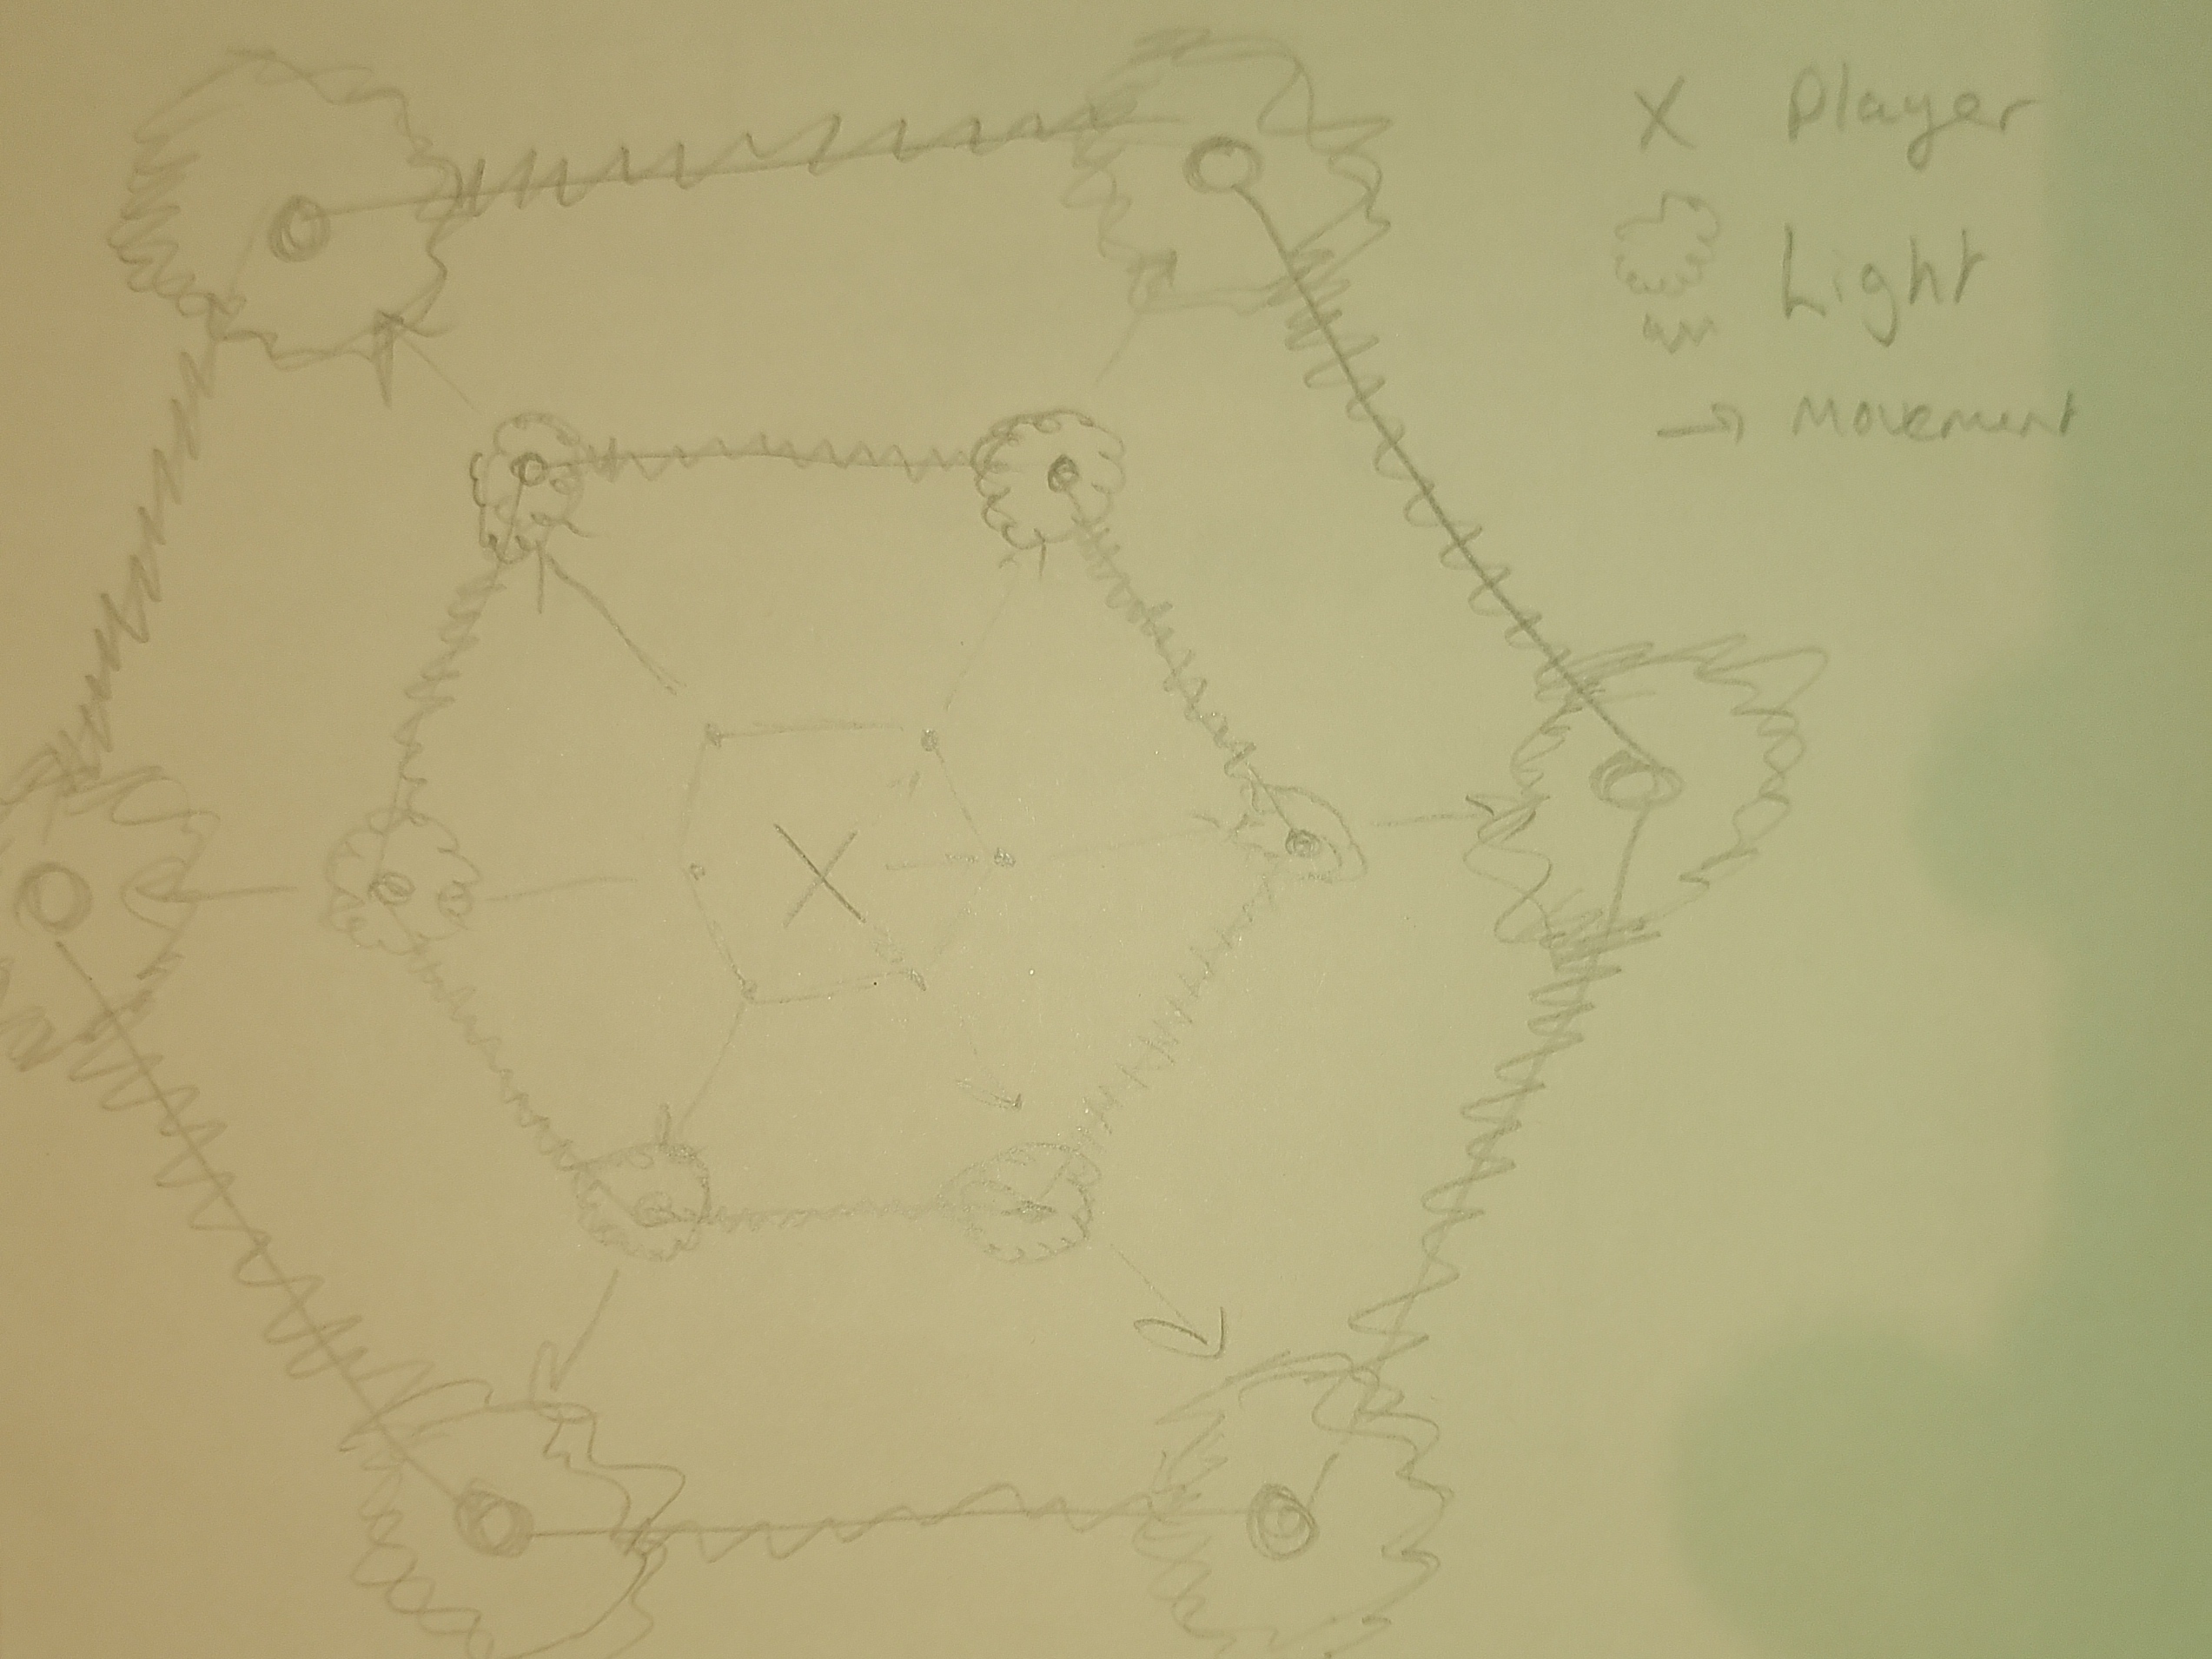 X Player
Light
→ Movement